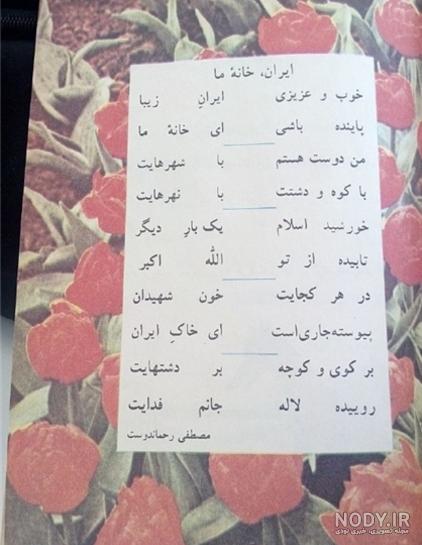 ایران، خانهٔ ما
خوب و عزیزی ایرانِ زیبا
پاینده باشی ای خانهٔ ما
من دوست هستم با شهرهایت
با کوه و دشتت با نهرهایت
خورشید اسلام یک بارِ دیگر
تابیده از تو اللّٰه اکبر
در هر کجایت خون شهیدان
پیوسته‌جاری‌است ای خاکِ ایران
بر کوی و کوچه بر دشتهایت
روییده لاله جانم فدایت
مصطفی رحماندوست
NODY.IR
مجله تصویری، خبری نودی